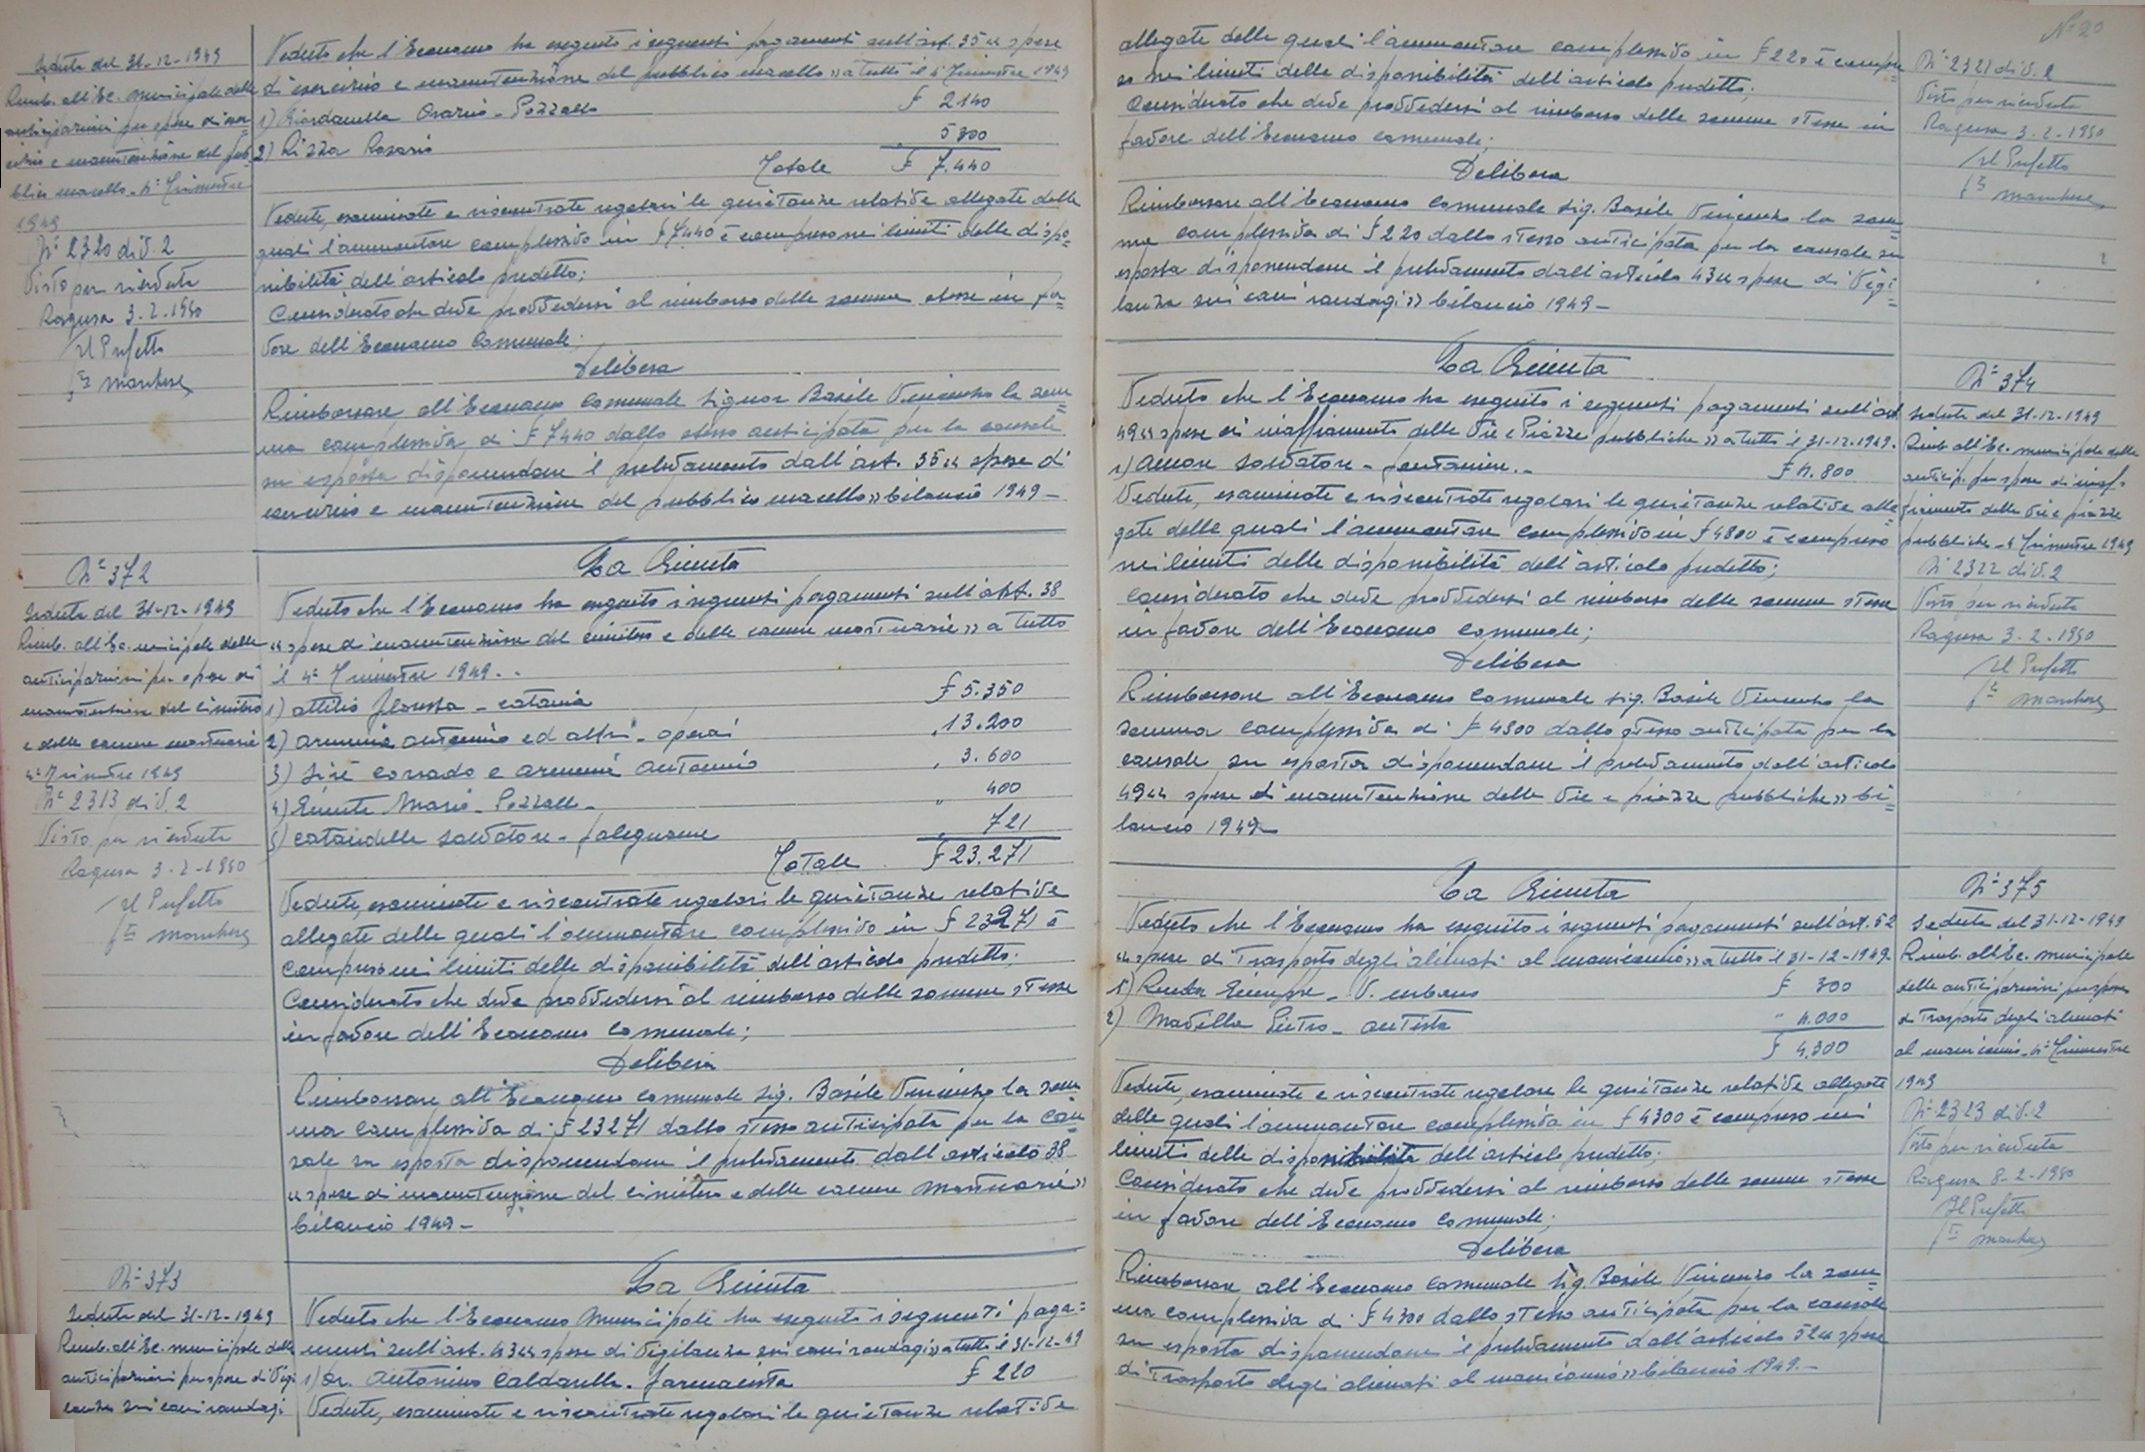 Seduta del 31-12-1949
Rimb. all'Ec. municipale delle
anticipazioni per spese di eser=
cizio e manutenzione del pub=
blico macello - 4° Trimestre
1949
N° 2320 div. 2
Visto per ricevuta
Ragusa 3-2-1950
Il Prefetto
Veduto che l'Economo ha eseguito i seguenti pagamenti sull'art. 35 « spese
di esercizio e manutenzione del pubblico macello » a tutto il 4° Trimestre 1949
1) Giordanella Orazio - Pozzallo £ 2140
2) Rizza Rosario " 5300
Totale £ 7.440
Vedute, esaminate e riscontrate regolari le quietanze relative allegate delle
quali l'ammontare complessivo in £ 7440 è compreso nei limiti delle dispo=
nibilità dell'articolo predetto;
Considerato che deve provvedersi al rimborso delle somme stesse in fa=
vore dell'Economo Comunale;
Delibera
Rimborsare all'Economo Comunale Signor Basile Vincenzo la som=
ma complessiva di £ 7440 dallo stesso anticipata per la causale
su esposta disponendone il prelevamento dall'art. 35 « spese di
esercizio e manutenzione del pubblico macello » bilancio 1949 -
N° 372
Seduta del 31-12-1949
Rimb. all'Ec. municipale delle
anticipazioni per spese di
manutenzione del cimitero
e delle camere mortuarie
4° Trimestre 1949
N° 2313 div. 2
Visto per ricevuta
Ragusa 3-2-1950
Il Prefetto
La Giunta
Veduto che l'Economo ha eseguito i seguenti pagamenti sull'art. 38
« spese di manutenzione del cimitero e delle camere mortuarie » a tutto
il 4° Trimestre 1949 -
1) Attilio - Catania £ 5.350
2) Armenia Antonino ed altri - operai " 13.200
3) Sirè Corrado e Armenia Antonino " 3.600
4) Giunta Mario - Pozzallo - " 400
5) Cataudella Salvatore - falegname " 721
Totale £ 23.271
Vedute, esaminate e riscontrate regolari le quietanze relative
allegate delle quali l'ammontare complessivo in £ 23271 è
compreso nei limiti delle disponibilità dell'articolo predetto;
Considerato che deve provvedersi al rimborso delle somme stesse
in favore dell'Economo Comunale;
Delibera
Rimborsare all'Economo Comunale Sig. Basile Vincenzo la som
ma complessiva di £ 23271 dallo stesso anticipata per la cau=
sale su esposta disponendone il prelevamento dall'articolo 38
« spese di manutenzione del cimitero e delle camere mortuarie »
bilancio 1949 -
N° 373
Seduta del 31-12-1949
Rimb. all'Ec. municipale delle
anticipazioni per spese di vigi
lanza sui cani randagi
La Giunta
Veduto che l'Economo Municipale ha eseguito i seguenti paga=
menti sull'art. 43 « spese di vigilanza sui cani randagi » a tutto il 31-12-49
1) Dr. Antonino Caldarella - farmacista £ 220
Vedute, esaminate e riscontrate regolari le quietanze relative
N° 20
allegate delle quali l'ammontare complessivo in £ 220 è compre=
so nei limiti delle disponibilità dell'articolo predetto;
Considerato che deve provvedersi al rimborso delle somme stesse in
favore dell'Economo Comunale;
Delibera
Rimborsare all'Economo Comunale Sig. Basile Vincenzo la som=
ma complessiva di £ 220 dallo stesso anticipata per la causale su
esposta disponendone il prelevamento dall'articolo 43 « spese di vigi=
lanza sui cani randagi » bilancio 1949 -
N° 2321 div. 2
Visto per ricevuta
Ragusa 3-2-1950
Il Prefetto
La Giunta
Veduto che l'Economo ha eseguito i seguenti pagamenti sull'art.
49 « spese di inaffiamento delle vie e Piazze pubbliche » a tutto il 31-12-1949.
1) Amore Salvatore - fontaniere - £ 4.800
Vedute, esaminate e riscontrate regolari le quietanze relative alle=
gate delle quali l'ammontare complessivo in £ 4800 è compreso
nei limiti delle disponibilità dell'articolo predetto;
Considerato che deve provvedersi al rimborso delle somme stesse
in favore dell'Economo Comunale;
Delibera
Rimborsare all'Economo Comunale Sig. Basile Vincenzo la
somma complessiva di £ 4800 dallo stesso anticipata per la
causale su esposta disponendone il prelevamento dall'articolo
49 « spese di manutenzione delle vie e piazze pubbliche » bi=
lancio 1949 -
N° 374
Seduta del 31-12-1949
Rimb. all'Ec. municipale delle
anticip. per spese di inaf=
fiamento delle vie e piazze
pubbliche - 4° Trimestre 1949
N° 2322 div. 2
Visto per ricevuta
Ragusa 3-2-1950
Il Prefetto
La Giunta
Veduto che l'Economo ha eseguito i seguenti pagamenti sull'art. 52
« spese di trasporto degli alienati al manicomio » a tutto il 31-12-1949.
1) Giuseppe - V. urbano £ 300
2) Pietro - autista " 4.000
£ 4.300
Vedute, esaminate e riscontrate regolare le quietanze relative allegate
delle quali l'ammontare complessivo in £ 4300 è compreso nei
limiti delle disponibilità dell'articolo predetto;
Considerato che deve provvedersi al rimborso delle somme stesse
in favore dell'Economo Comunale;
Delibera
Rimborsare all'Economo Comunale Sig. Basile Vincenzo la som=
ma complessiva di £ 4300 dallo stesso anticipata per la causale
su esposta disponendone il prelevamento dall'articolo 52 « spese
di trasporto degli alienati al manicomio » bilancio 1949 -
N° 375
Seduta del 31-12-1949
Rimb. all'Ec. municipale
delle anticipazioni per spese
di trasporto degli alienati
al manicomio - 4° Trimestre
1949
N° 2323 div. 2
Visto per ricevuta
Ragusa 8-2-1950
Il Prefetto